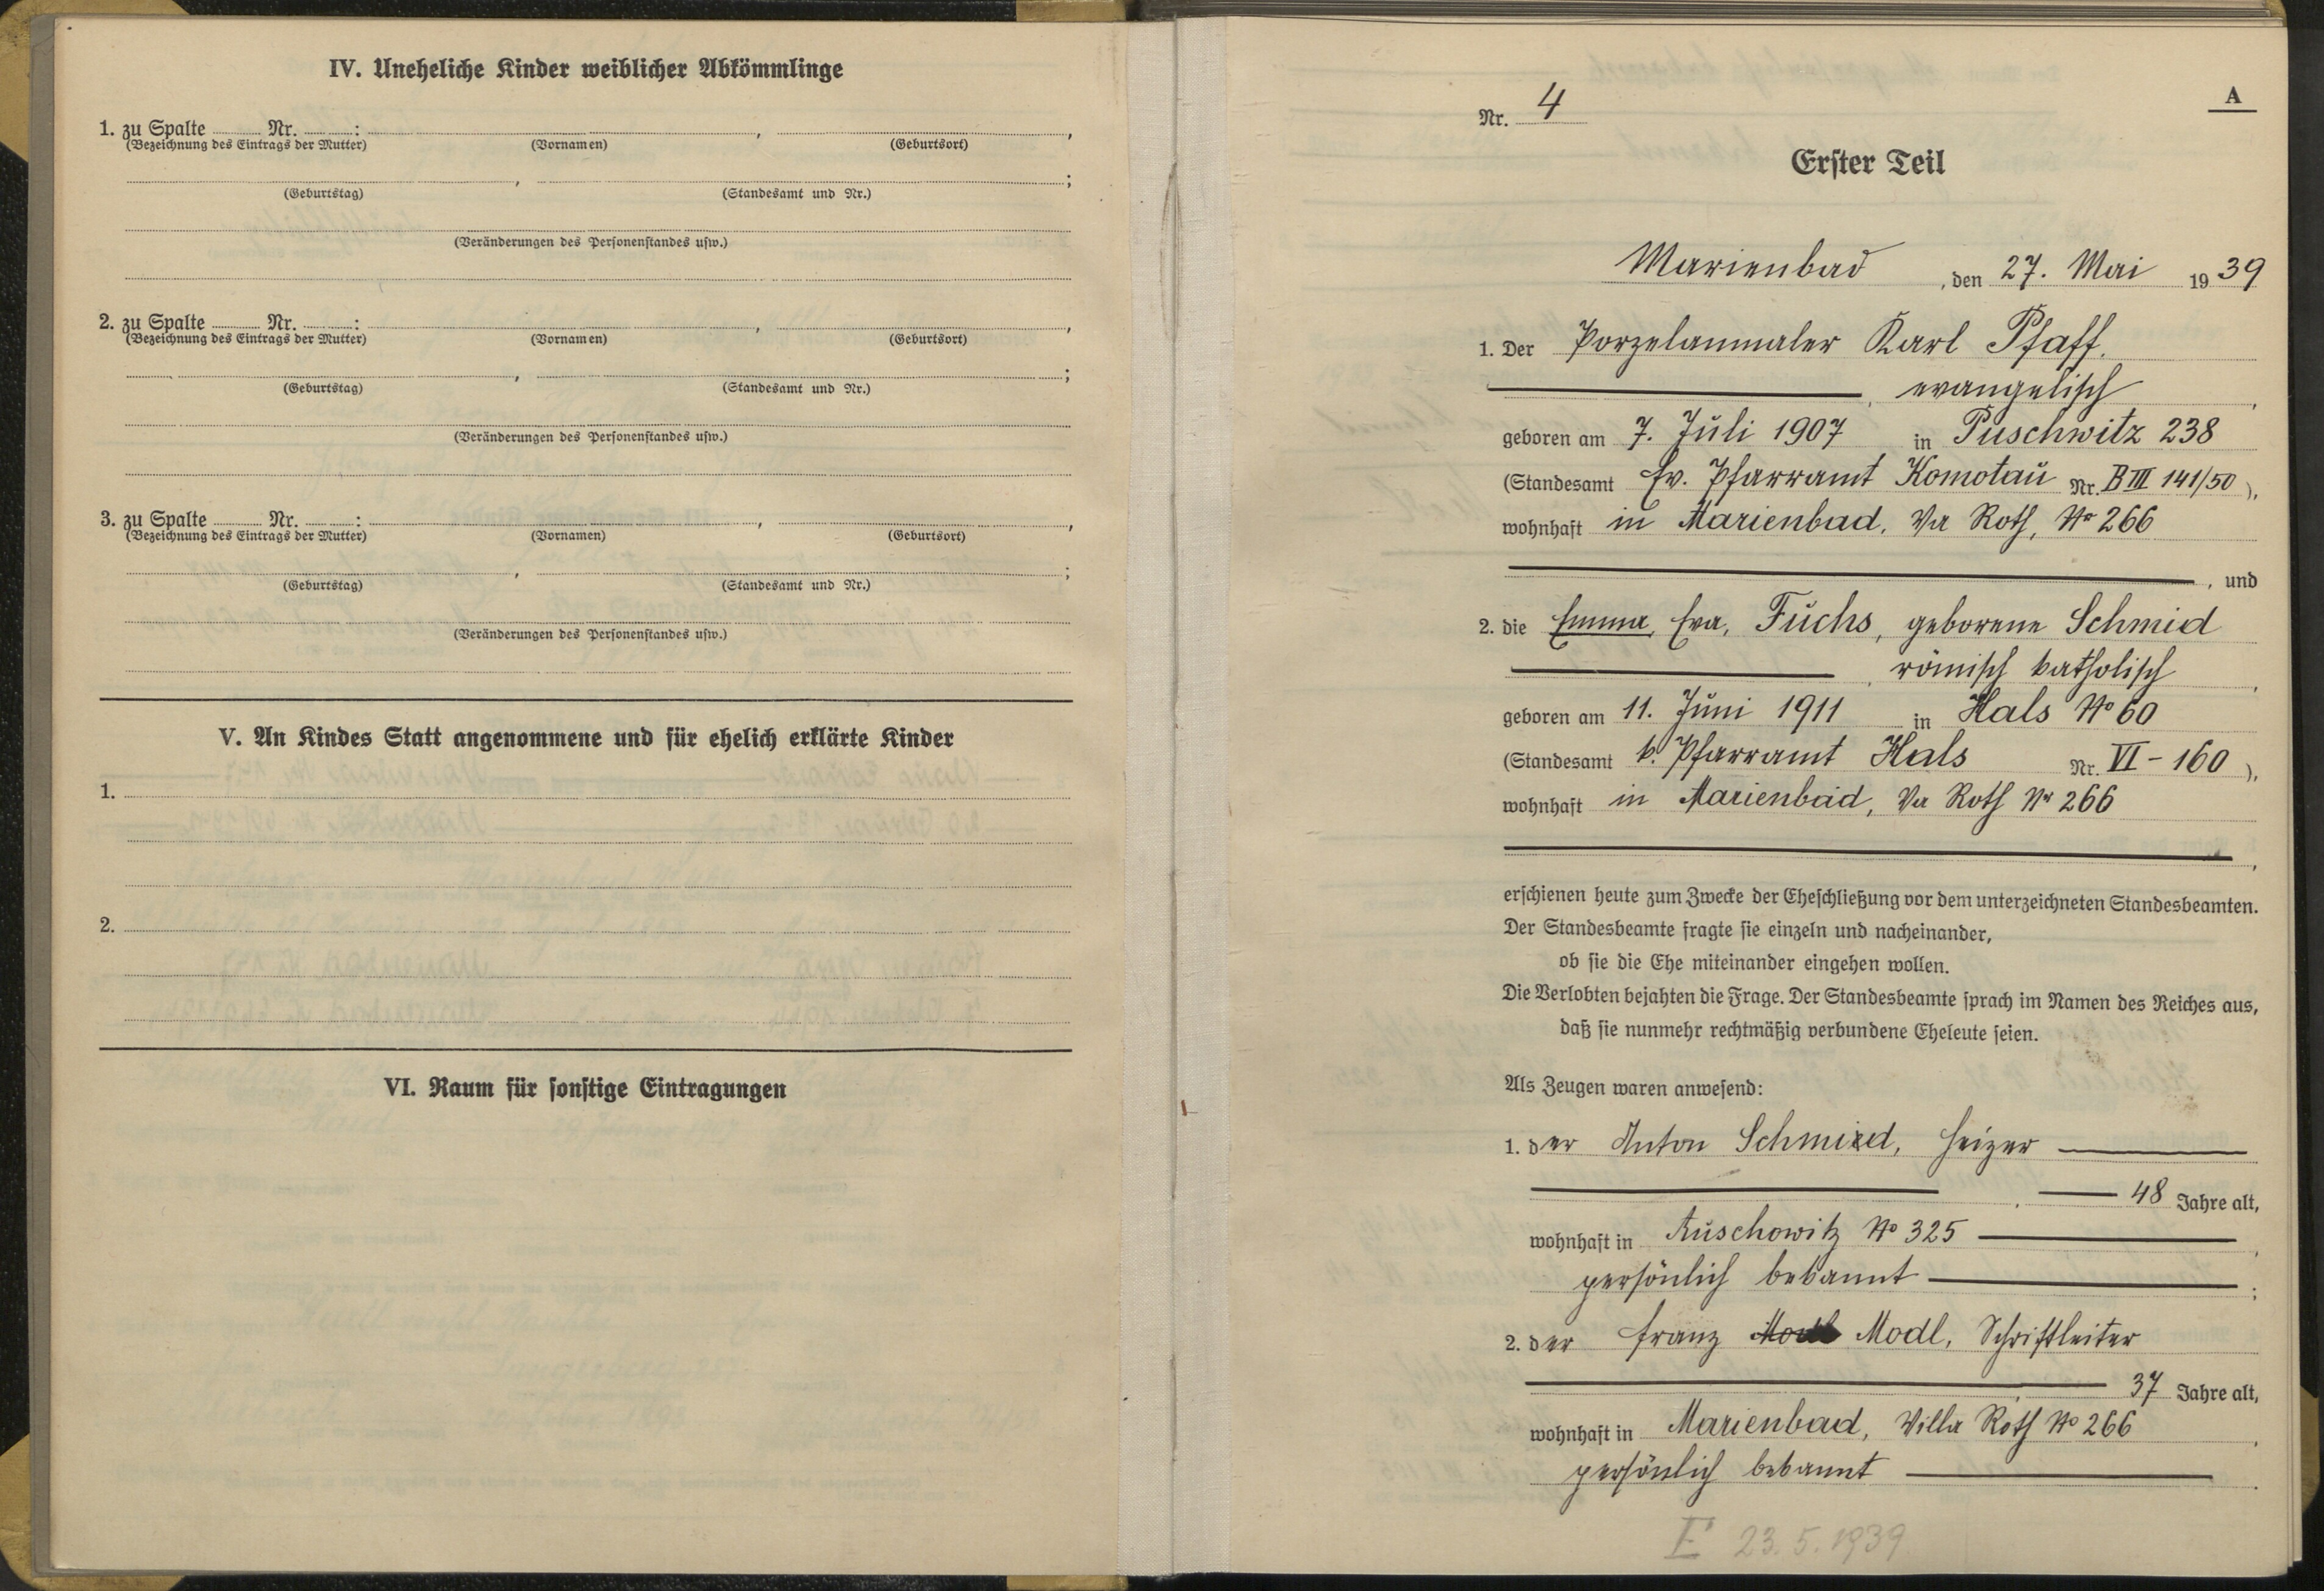 IV. Uneheliche Kinder weiblicher Abkömmlinge
1. zu Spalte Nr. : , ,
(Bezeichnung des Eintrags der Mutter) (Vornamen) (Geburtsort)
, ;
(Geburtstag) (Standesamt und Nr.)
(Veränderungen des Personenstandes usw.)
2. zu Spalte Nr. : , ,
(Bezeichnung des Eintrags der Mutter) (Vornamen) (Geburtsort)
, ;
(Geburtstag) (Standesamt und Nr.)
(Veränderungen des Personenstandes usw.)
3. zu Spalte Nr. : , ,
(Bezeichnung des Eintrags der Mutter) (Vornamen) (Geburtsort)
, ;
(Geburtstag) (Standesamt und Nr.)
(Veränderungen des Personenstandes usw.)
V. An Kindes Statt angenommene und für ehelich erklärte Kinder
1.
2.
VI. Raum für sonstige Eintragungen
A
Nr. 4
Erster Teil
Marienbad, den 27. Mai 1939
1. Der Porzelanmaler Karl Pfaff.
, evangelisch,
geboren am 7. Juli 1907 in Puschwitz 238
(Standesamt Ev. Pfarramt Komotau Nr. B III 141/50),
wohnhaft in Marienbad, Va Roth, No 266
, und
2. die Emma, Eva, Fuchs, geborene Schmid
, römisch katholisch,
geboren am 11. Juni 1911 in Hals No 60
(Standesamt k. Pfarramt Hals Nr. VI - 160),
wohnhaft in Marienbad, Va Roth Nr 266
,
erschienen heute zum Zwecke der Eheschließung vor dem unterzeichneten Standesbeamten.
Der Standesbeamte fragte sie einzeln und nacheinander,
ob sie die Ehe miteinander eingehen wollen.
Die Verlobten bejahten die Frage. Der Standesbeamte sprach im Namen des Reiches aus,
daß sie nunmehr rechtmäßig verbundene Eheleute seien.
Als Zeugen waren anwesend:
1. der Anton Schmied, Heizer
, 48 Jahre alt,
wohnhaft in Auschowitz No 325,
persönlich bekannt;
2. der Franz Modl, Schriftleiter
, 37 Jahre alt,
wohnhaft in Marienbad, Villa Roth No 266,
persönlich bekannt.
E 23.5.1939